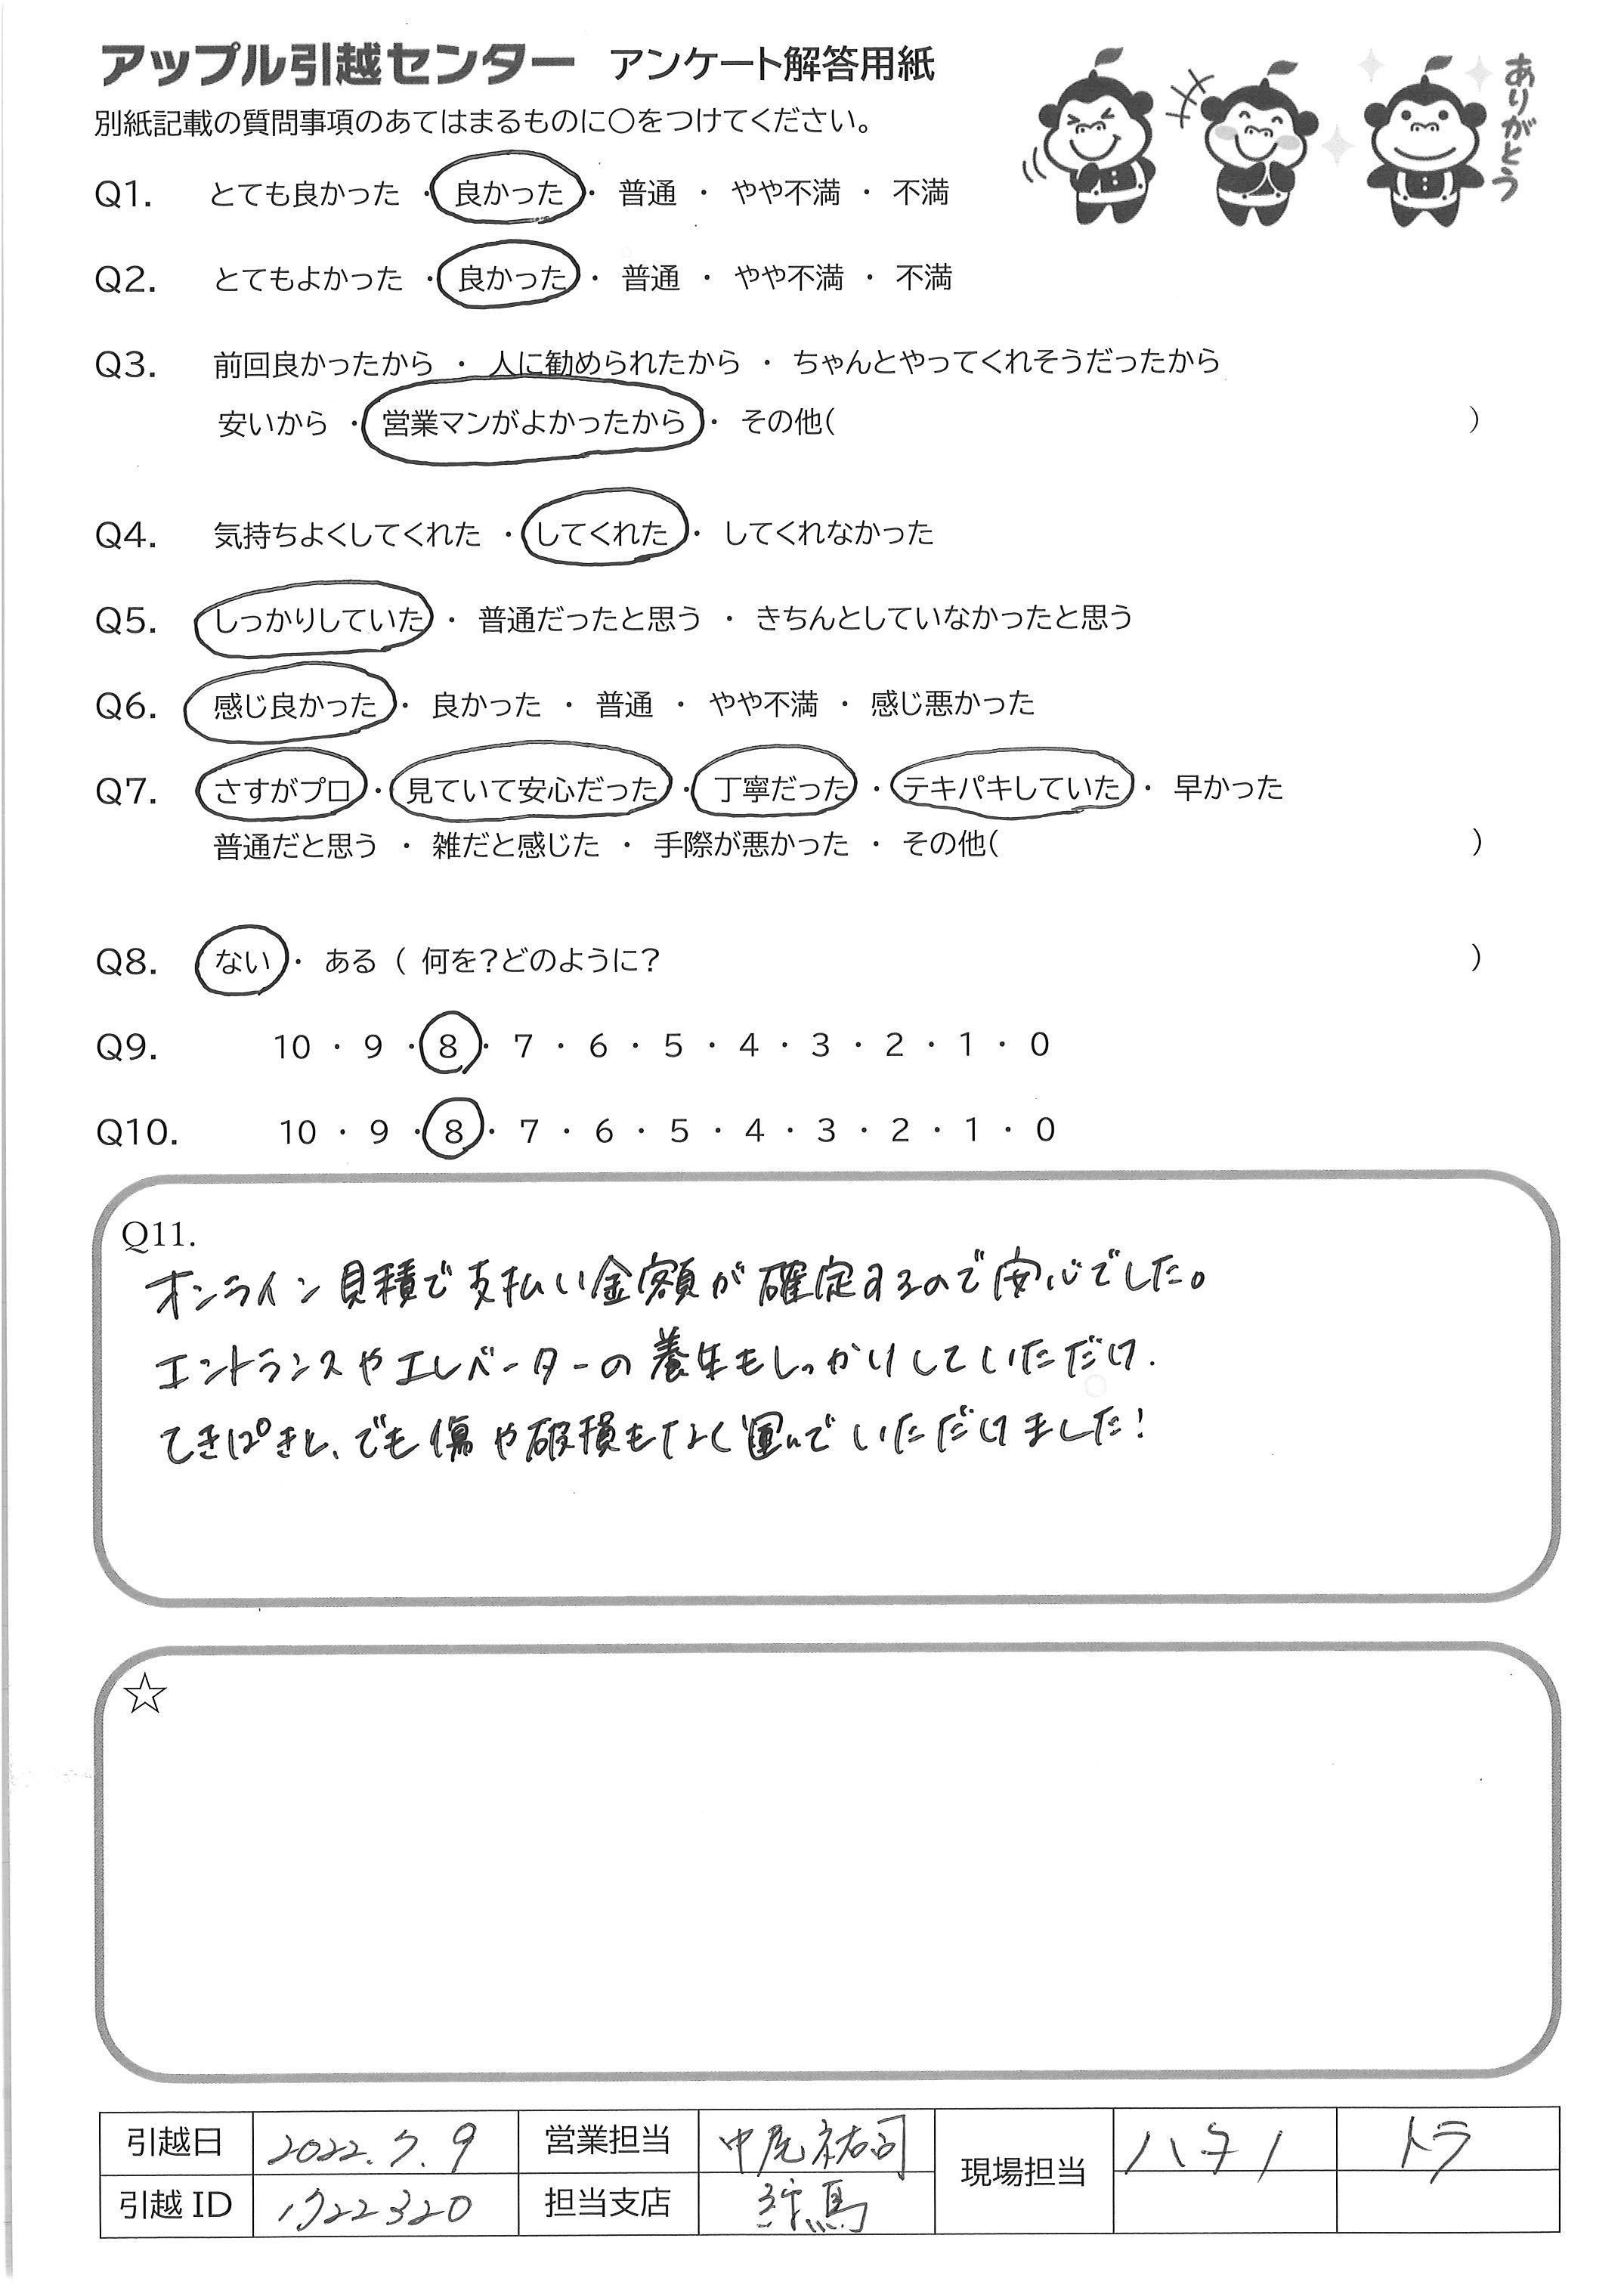 アップル引越センター アンケート解答用紙
ありがとう
別紙記載の質問事項のあてはまるものに○をつけてください。
Q1. とても良かった ・ 良かった ・ 普通 ・ やや不満 ・ 不満
Q2. とてもよかった ・ 良かった ・ 普通 ・ やや不満 ・ 不満
Q3. 前回良かったから ・ 人に勧められたから ・ ちゃんとやってくれそうだったから
安いから ・ 営業マンがよかったから ・ その他( )
Q4. 気持ちよくしてくれた ・ してくれた ・ してくれなかった
Q5. しっかりしていた ・ 普通だったと思う ・ きちんとしていなかったと思う
Q6. 感じ良かった ・ 良かった ・ 普通 ・ やや不満 ・ 感じ悪かった
Q7. さすがプロ ・ 見ていて安心だった ・ 丁寧だった ・ テキパキしていた ・ 早かった
普通だと思う ・ 雑だと感じた ・ 手際が悪かった ・ その他( )
Q8. ない ・ ある ( 何を?どのように? )
Q9. 10 ・ 9 ・ 8 ・ 7 ・ 6 ・ 5 ・ 4 ・ 3 ・ 2 ・ 1 ・ 0
Q10. 10 ・ 9 ・ 8 ・ 7 ・ 6 ・ 5 ・ 4 ・ 3 ・ 2 ・ 1 ・ 0
Q11.
オンライン見積で支払い金額が確定するので安心でした。
エントランスやエレベーターの養生もしっかりしていただけ.
てきぱきと、でも傷や破損もなく運んでいただけました!
☆
引越日 2022.7.9 営業担当 中尾祐司 現場担当 ハタノ トラ
引越 ID 1722320 担当支店 練馬